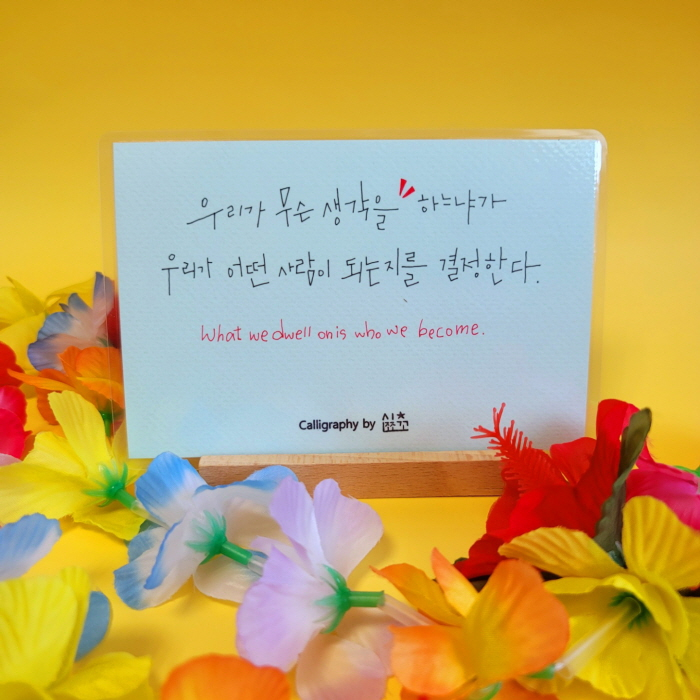 우리가 무슨 생각을 하느냐가
우리가 어떤 사람이 되는지를 결정한다.
What we dwell on is who we become.
Calligraphy by